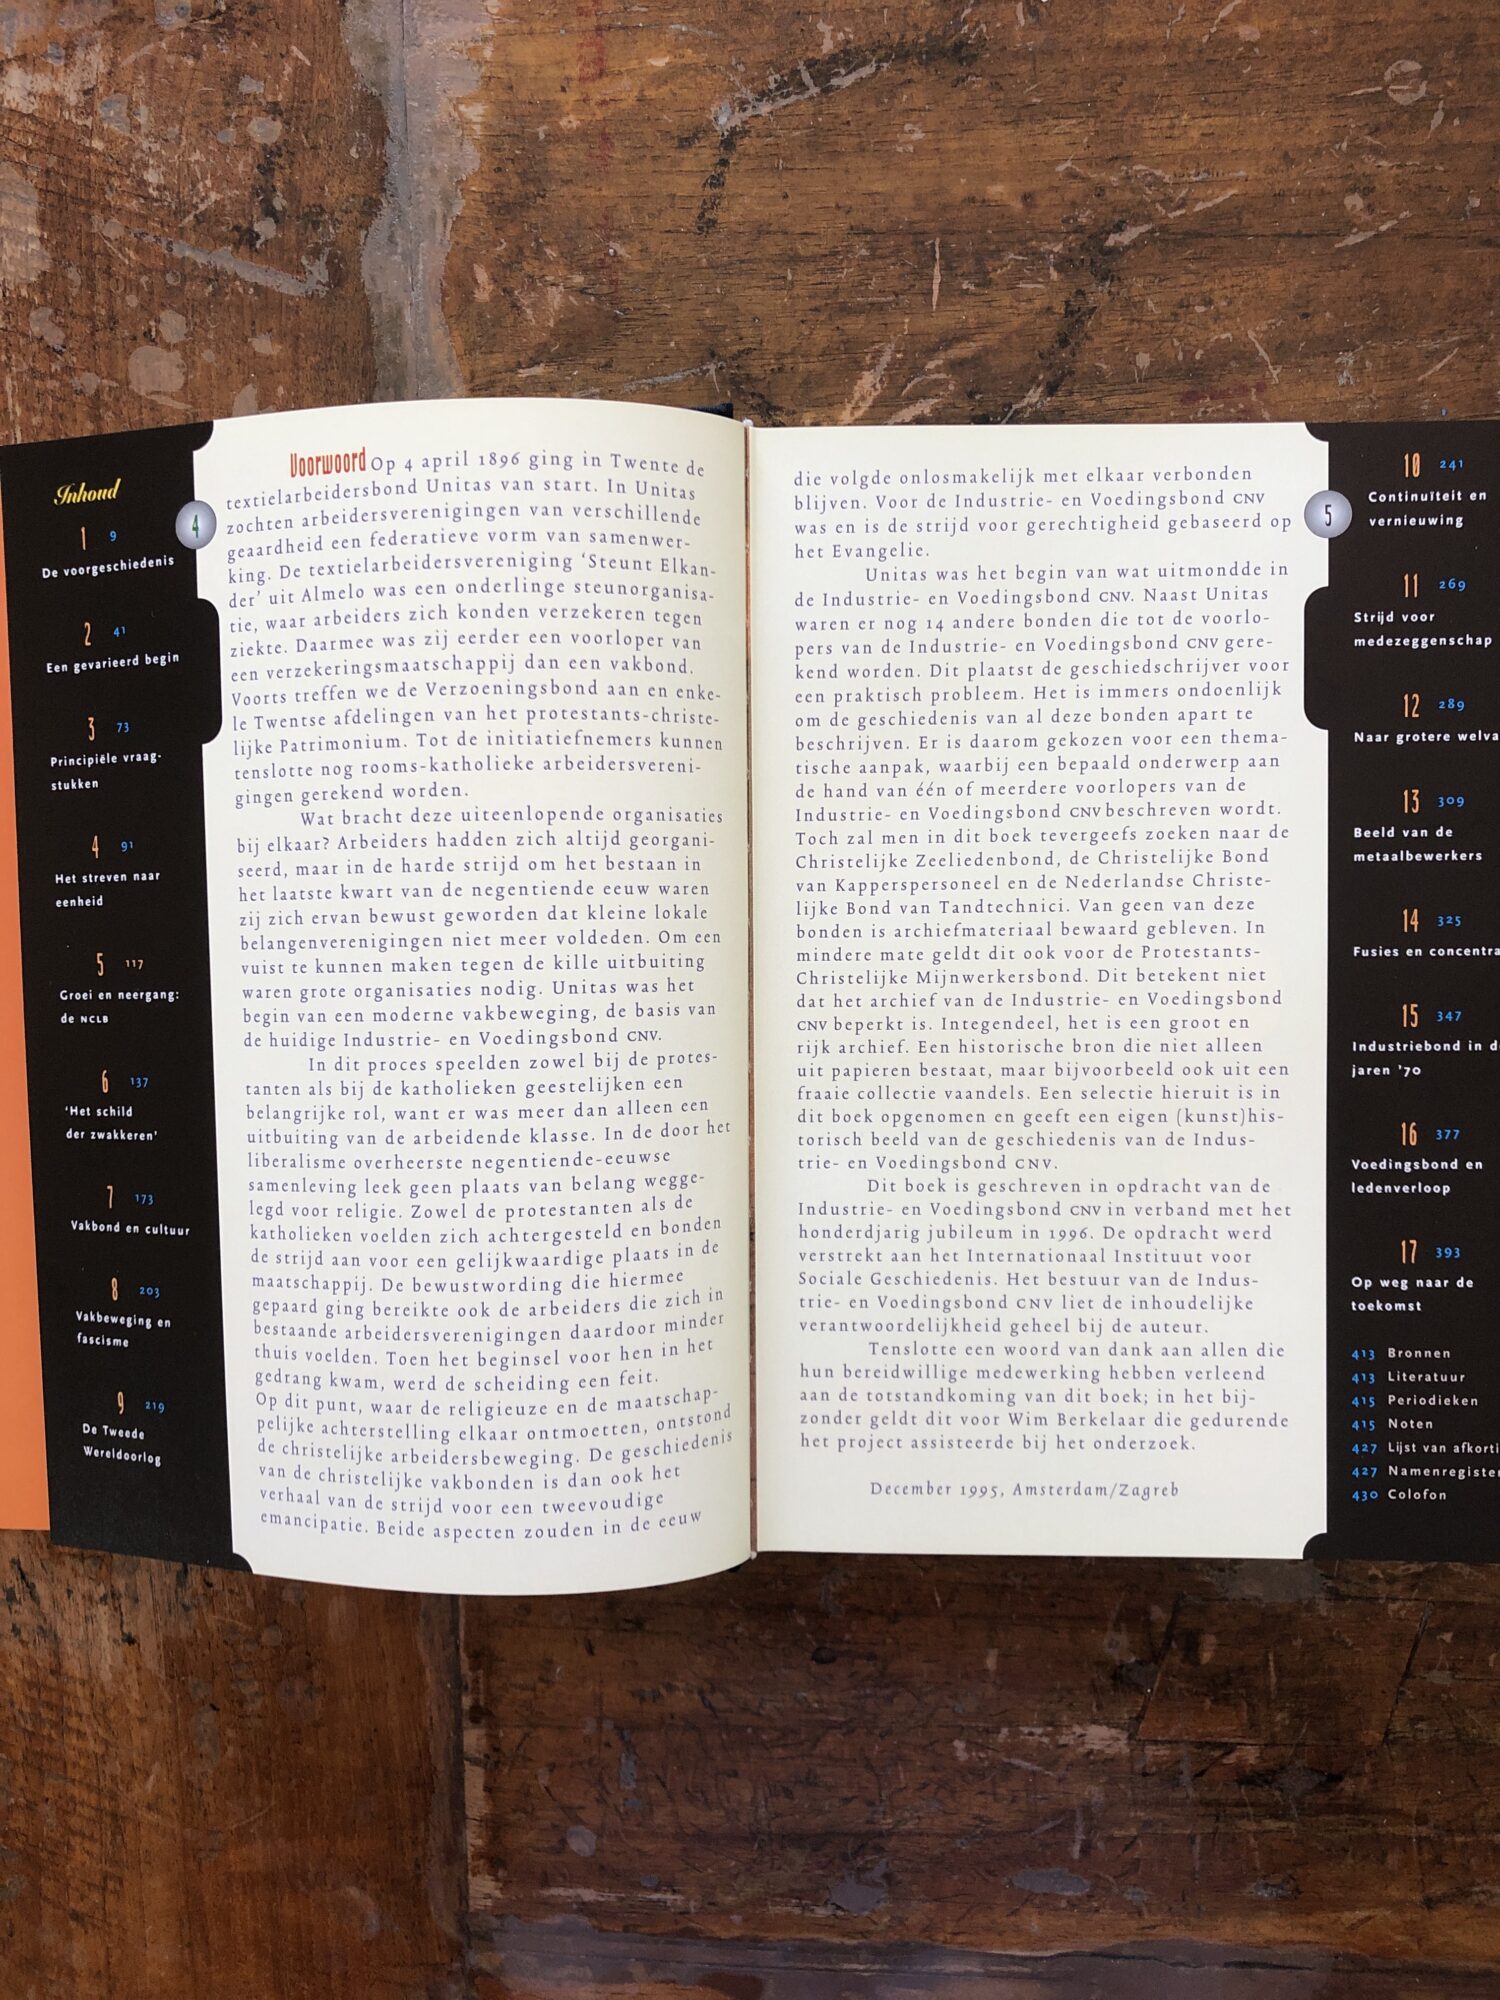 Inhoud
1 9
De voorgeschiedenis
2 41
Een gevarieerd begin
3 73
Principiële vraag-
stukken
4 91
Het streven naar
eenheid
5 117
Groei en neergang:
de NCLB
6 137
‘Het schild
der zwakkeren’
7 173
Vakbond en cultuur
8 203
Vakbeweging en
fascisme
9 219
De Tweede
Wereldoorlog
4
Voorwoord Op 4 april 1896 ging in Twente de
textielarbeidersbond Unitas van start. In Unitas
zochten arbeidersverenigingen van verschillende
geaardheid een federatieve vorm van samenwer-
king. De textielarbeidersvereniging ‘Steunt Elkan-
der’ uit Almelo was een onderlinge steunorganisa-
tie, waar arbeiders zich konden verzekeren tegen
ziekte. Daarmee was zij eerder een voorloper van
een verzekeringsmaatschappij dan een vakbond.
Voorts treffen we de Verzoeningsbond aan en enke-
le Twentse afdelingen van het protestants-christe-
lijke Patrimonium. Tot de initiatiefnemers kunnen
tenslotte nog rooms-katholieke arbeidersvereni-
gingen gerekend worden.
Wat bracht deze uiteenlopende organisaties
bij elkaar? Arbeiders hadden zich altijd georgani-
seerd, maar in de harde strijd om het bestaan in
het laatste kwart van de negentiende eeuw waren
zij zich ervan bewust geworden dat kleine lokale
belangenverenigingen niet meer voldeden. Om een
vuist te kunnen maken tegen de kille uitbuiting
waren grote organisaties nodig. Unitas was het
begin van een moderne vakbeweging, de basis van
de huidige Industrie- en Voedingsbond CNV.
In dit proces speelden zowel bij de protes-
tanten als bij de katholieken geestelijken een
belangrijke rol, want er was meer dan alleen een
uitbuiting van de arbeidende klasse. In de door het
liberalisme overheerste negentiende-eeuwse
samenleving leek geen plaats van belang wegge-
legd voor religie. Zowel de protestanten als de
katholieken voelden zich achtergesteld en bonden
de strijd aan voor een gelijkwaardige plaats in de
maatschappij. De bewustwording die hiermee
gepaard ging bereikte ook de arbeiders die zich in
bestaande arbeidersverenigingen daardoor minder
thuis voelden. Toen het beginsel voor hen in het
gedrang kwam, werd de scheiding een feit.
Op dit punt, waar de religieuze en de maatschap-
pelijke achterstelling elkaar ontmoetten, ontstond
de christelijke arbeidersbeweging. De geschiedenis
van de christelijke vakbonden is dan ook het
verhaal van de strijd voor een tweevoudige
emancipatie. Beide aspecten zouden in de eeuw
die volgde onlosmakelijk met elkaar verbonden
blijven. Voor de Industrie- en Voedingsbond CNV
was en is de strijd voor gerechtigheid gebaseerd op
het Evangelie.
Unitas was het begin van wat uitmondde in
de Industrie- en Voedingsbond CNV. Naast Unitas
waren er nog 14 andere bonden die tot de voorlo-
pers van de Industrie- en Voedingsbond CNV gere-
kend worden. Dit plaatst de geschiedschrijver voor
een praktisch probleem. Het is immers ondoenlijk
om de geschiedenis van al deze bonden apart te
beschrijven. Er is daarom gekozen voor een thema-
tische aanpak, waarbij een bepaald onderwerp aan
de hand van één of meerdere voorlopers van de
Industrie- en Voedingsbond CNV beschreven wordt.
Toch zal men in dit boek tevergeefs zoeken naar de
Christelijke Zeeliedenbond, de Christelijke Bond
van Kapperspersoneel en de Nederlandse Christe-
lijke Bond van Tandtechnici. Van geen van deze
bonden is archiefmateriaal bewaard gebleven. In
mindere mate geldt dit ook voor de Protestants-
Christelijke Mijnwerkersbond. Dit betekent niet
dat het archief van de Industrie- en Voedingsbond
CNV beperkt is. Integendeel, het is een groot en
rijk archief. Een historische bron die niet alleen
uit papieren bestaat, maar bijvoorbeeld ook uit een
fraaie collectie vaandels. Een selectie hieruit is in
dit boek opgenomen en geeft een eigen (kunst)his-
torisch beeld van de geschiedenis van de Indus-
trie- en Voedingsbond CNV.
Dit boek is geschreven in opdracht van de
Industrie- en Voedingsbond CNV in verband met het
honderdjarig jubileum in 1996. De opdracht werd
verstrekt aan het Internationaal Instituut voor
Sociale Geschiedenis. Het bestuur van de Indus-
trie- en Voedingsbond CNV liet de inhoudelijke
verantwoordelijkheid geheel bij de auteur.
Tenslotte een woord van dank aan allen die
hun bereidwillige medewerking hebben verleend
aan de totstandkoming van dit boek; in het bij-
zonder geldt dit voor Wim Berkelaar die gedurende
het project assisteerde bij het onderzoek.
December 1995, Amsterdam/Zagreb
5
10 241
Continuïteit en
vernieuwing
11 269
Strijd voor
medezeggenschap
12 289
Naar grotere welva
13 309
Beeld van de
metaalbewerkers
14 325
Fusies en concentra
15 347
Industriebond in d
jaren ’70
16 377
Voedingsbond en
ledenverloop
17 393
Op weg naar de
toekomst
413 Bronnen
413 Literatuur
415 Periodieken
415 Noten
427 Lijst van afkorti
427 Namenregister
430 Colofon